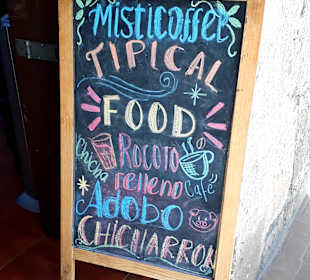 Misticoffee
TIPICAL
FOOD
Chicha
ROCOTO
relleno
Café
Adobo
CHICHARRON